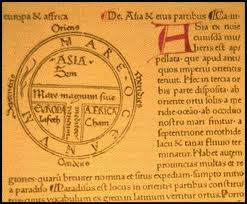 europa & affrica
De Asia & eius partibus
Oriens
MARE OCEANUM
Septentrio
Meridies
ASIA
Sem
Mare magnum siue
mediterraneum
EUROPA
Iafeth
AFRICA
Cham
Occidens
Asia ex noīe
cuiusdā mu
lieris est ap
pellata. que apud anti
quos imperium orientis
tenuit. Hec in tercia
orbis parte disposita. ab
oriente ortu solis. a meri
die oceano. ab occiduo
nostro mari finitur. a
septentrione meothide
lacu & tanai fluuio ter
minatur. Habet autem
prouincias multas & re
giones. quarū breuiter nomina et situs expediam. sumpto initio
a paradiso Paradisus est locus in orientis partibus
cuius vocabulum ex greco in latinum vertitur ortus. Porro